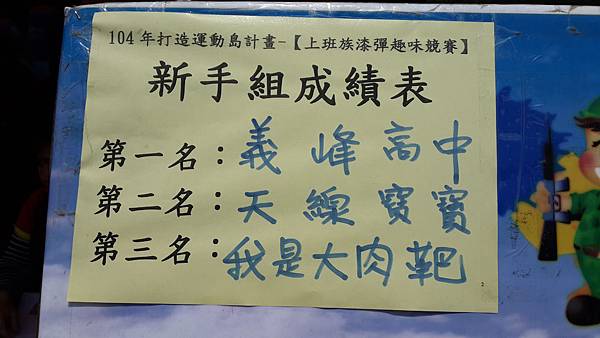 104年打造運動島計畫-【上班族漆彈趣味競賽】
新手組成績表
第一名：義峰高中
第二名：天線寶寶
第三名：我是大肉靶